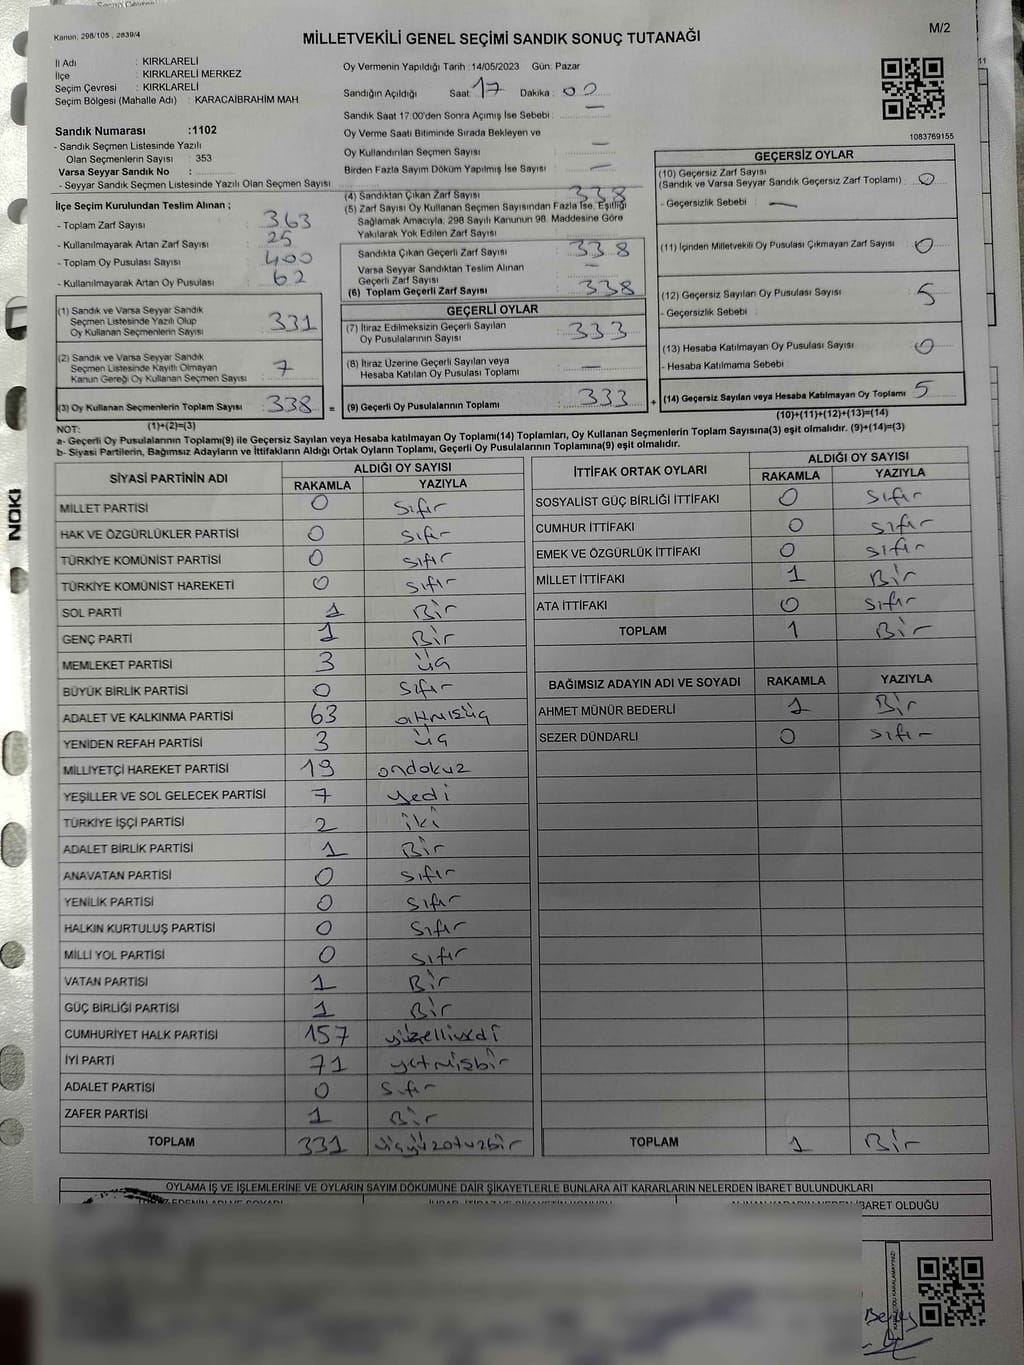 Kanun, 298/105 , 2839/4
M/2
MİLLETVEKİLİ GENEL SEÇİMİ SANDIK SONUÇ TUTANAĞI
İl Adı : KIRKLARELİ
İlçe : KIRKLARELİ MERKEZ
Seçim Çevresi : KIRKLARELİ
Seçim Bölgesi (Mahalle Adı) : KARACAİBRAHİM MAH
Sandık Numarası :1102
- Sandık Seçmen Listesinde Yazılı
Olan Seçmenlerin Sayısı : 353
Varsa Seyyar Sandık No :
- Seyyar Sandık Seçmen Listesinde Yazılı Olan Seçmen Sayısı
Oy Vermenin Yapıldığı Tarih :14/05/2023 Gün: Pazar
Sandığın Açıldığı Saat: 17 Dakika : 00
Sandık Saat 17:00'den Sonra Açımış İse Sebebi : —
Oy Verme Saati Bitiminde Sırada Bekleyen ve
Oy Kullandırılan Seçmen Sayısı : —
Birden Fazla Sayım Döküm Yapılmış İse Sayısı : —
1083769155
İlçe Seçim Kurulundan Teslim Alınan ;
- Toplam Zarf Sayısı : 363
- Kullanılmayarak Artan Zarf Sayısı : 25
- Toplam Oy Pusulası Sayısı : 400
- Kullanılmayarak Artan Oy Pusulası : 62
(1) Sandık ve Varsa Seyyar Sandık
Seçmen Listesinde Yazılı Olup
Oy Kullanan Seçmenlerin Sayısı : 331
(2) Sandık ve Varsa Seyyar Sandık
Seçmen Listesinde Kayıtlı Olmayan
Kanun Gereği Oy Kullanan Seçmen Sayısı : 7
(3) Oy Kullanan Seçmenlerin Toplam Sayısı : 338 =
(1)+(2)=(3)
(4) Sandıktan Çıkan Zarf Sayısı : 338
(5) Zarf Sayısı Oy Kullanan Seçmen Sayısından Fazla İse, Eşitliği
Sağlamak Amacıyla, 298 Sayılı Kanunun 98. Maddesine Göre
Yakılarak Yok Edilen Zarf Sayısı :
Sandıkta Çıkan Geçerli Zarf Sayısı : 338
Varsa Seyyar Sandıktan Teslim Alınan
Geçerli Zarf Sayısı : —
(6) Toplam Geçerli Zarf Sayısı : 338
GEÇERLİ OYLAR
(7) İtiraz Edilmeksizin Geçerli Sayılan
Oy Pusulalarının Sayısı : 333
(8) İtiraz Üzerine Geçerli Sayılan veya
Hesaba Katılan Oy Pusulası Toplamı : —
(9) Geçerli Oy Pusulalarının Toplamı : 333 +
GEÇERSİZ OYLAR
(10) Geçersiz Zarf Sayısı
(Sandık ve Varsa Seyyar Sandık Geçersiz Zarf Toplamı) : 0
- Geçersizlik Sebebi : —
(11) İçinden Milletvekili Oy Pusulası Çıkmayan Zarf Sayısı : 0
(12) Geçersiz Sayılan Oy Pusulası Sayısı : 5
- Geçersizlik Sebebi :
(13) Hesaba Katılmayan Oy Pusulası Sayısı : 0
- Hesaba Katılmama Sebebi :
(14) Geçersiz Sayılan veya Hesaba Katılmayan Oy Toplamı : 5
(10)+(11)+(12)+(13)=(14)
NOT:
a- Geçerli Oy Pusulalarının Toplamı(9) ile Geçersiz Sayılan veya Hesaba katılmayan Oy Toplamı(14) Toplamları, Oy Kullanan Seçmenlerin Toplam Sayısına(3) eşit olmalıdır. (9)+(14)=(3)
b- Siyasi Partilerin, Bağımsız Adayların ve İttifakların Aldığı Ortak Oyların Toplamı, Geçerli Oy Pusulalarının Toplamına(9) eşit olmalıdır.
SİYASİ PARTİNİN ADI ALDIĞI OY SAYISI
RAKAMLA YAZIYLA
MİLLET PARTİSİ 0 Sıfır
HAK VE ÖZGÜRLÜKLER PARTİSİ 0 Sıfır
TÜRKİYE KOMÜNİST PARTİSİ 0 Sıfır
TÜRKİYE KOMÜNİST HAREKETİ 0 Sıfır
SOL PARTİ 1 Bir
GENÇ PARTİ 1 Bir
MEMLEKET PARTİSİ 3 üç
BÜYÜK BİRLİK PARTİSİ 0 Sıfır
ADALET VE KALKINMA PARTİSİ 63 altmışüç
YENİDEN REFAH PARTİSİ 3 üç
MİLLİYETÇİ HAREKET PARTİSİ 19 ondokuz
YEŞİLLER VE SOL GELECEK PARTİSİ 7 yedi
TÜRKİYE İŞÇİ PARTİSİ 2 iki
ADALET BİRLİK PARTİSİ 1 Bir
ANAVATAN PARTİSİ 0 Sıfır
YENİLİK PARTİSİ 0 Sıfır
HALKIN KURTULUŞ PARTİSİ 0 Sıfır
MİLLİ YOL PARTİSİ 0 Sıfır
VATAN PARTİSİ 1 Bir
GÜÇ BİRLİĞİ PARTİSİ 1 Bir
CUMHURİYET HALK PARTİSİ 157 yüzelliyedi
İYİ PARTİ 71 yetmişbir
ADALET PARTİSİ 0 Sıfır
ZAFER PARTİSİ 1 Bir
TOPLAM 331 üçyüzotuzbir
İTTİFAK ORTAK OYLARI ALDIĞI OY SAYISI
RAKAMLA YAZIYLA
SOSYALİST GÜÇ BİRLİĞİ İTTİFAKI 0 Sıfır
CUMHUR İTTİFAKI 0 Sıfır
EMEK VE ÖZGÜRLÜK İTTİFAKI 0 Sıfır
MİLLET İTTİFAKI 1 Bir
ATA İTTİFAKI 0 Sıfır
TOPLAM 1 Bir
BAĞIMSIZ ADAYIN ADI VE SOYADI RAKAMLA YAZIYLA
AHMET MÜNÜR BEDERLİ 1 Bir
SEZER DÜNDARLI 0 Sıfır
TOPLAM 1 Bir
OYLAMA İŞ VE İŞLEMLERİNE VE OYLARIN SAYIM DÖKÜMÜNE DAİR ŞİKAYETLERLE BUNLARA AİT KARARLARIN NELERDEN İBARET BULUNDUKLARI
İBARET OLDUĞU
NOKI